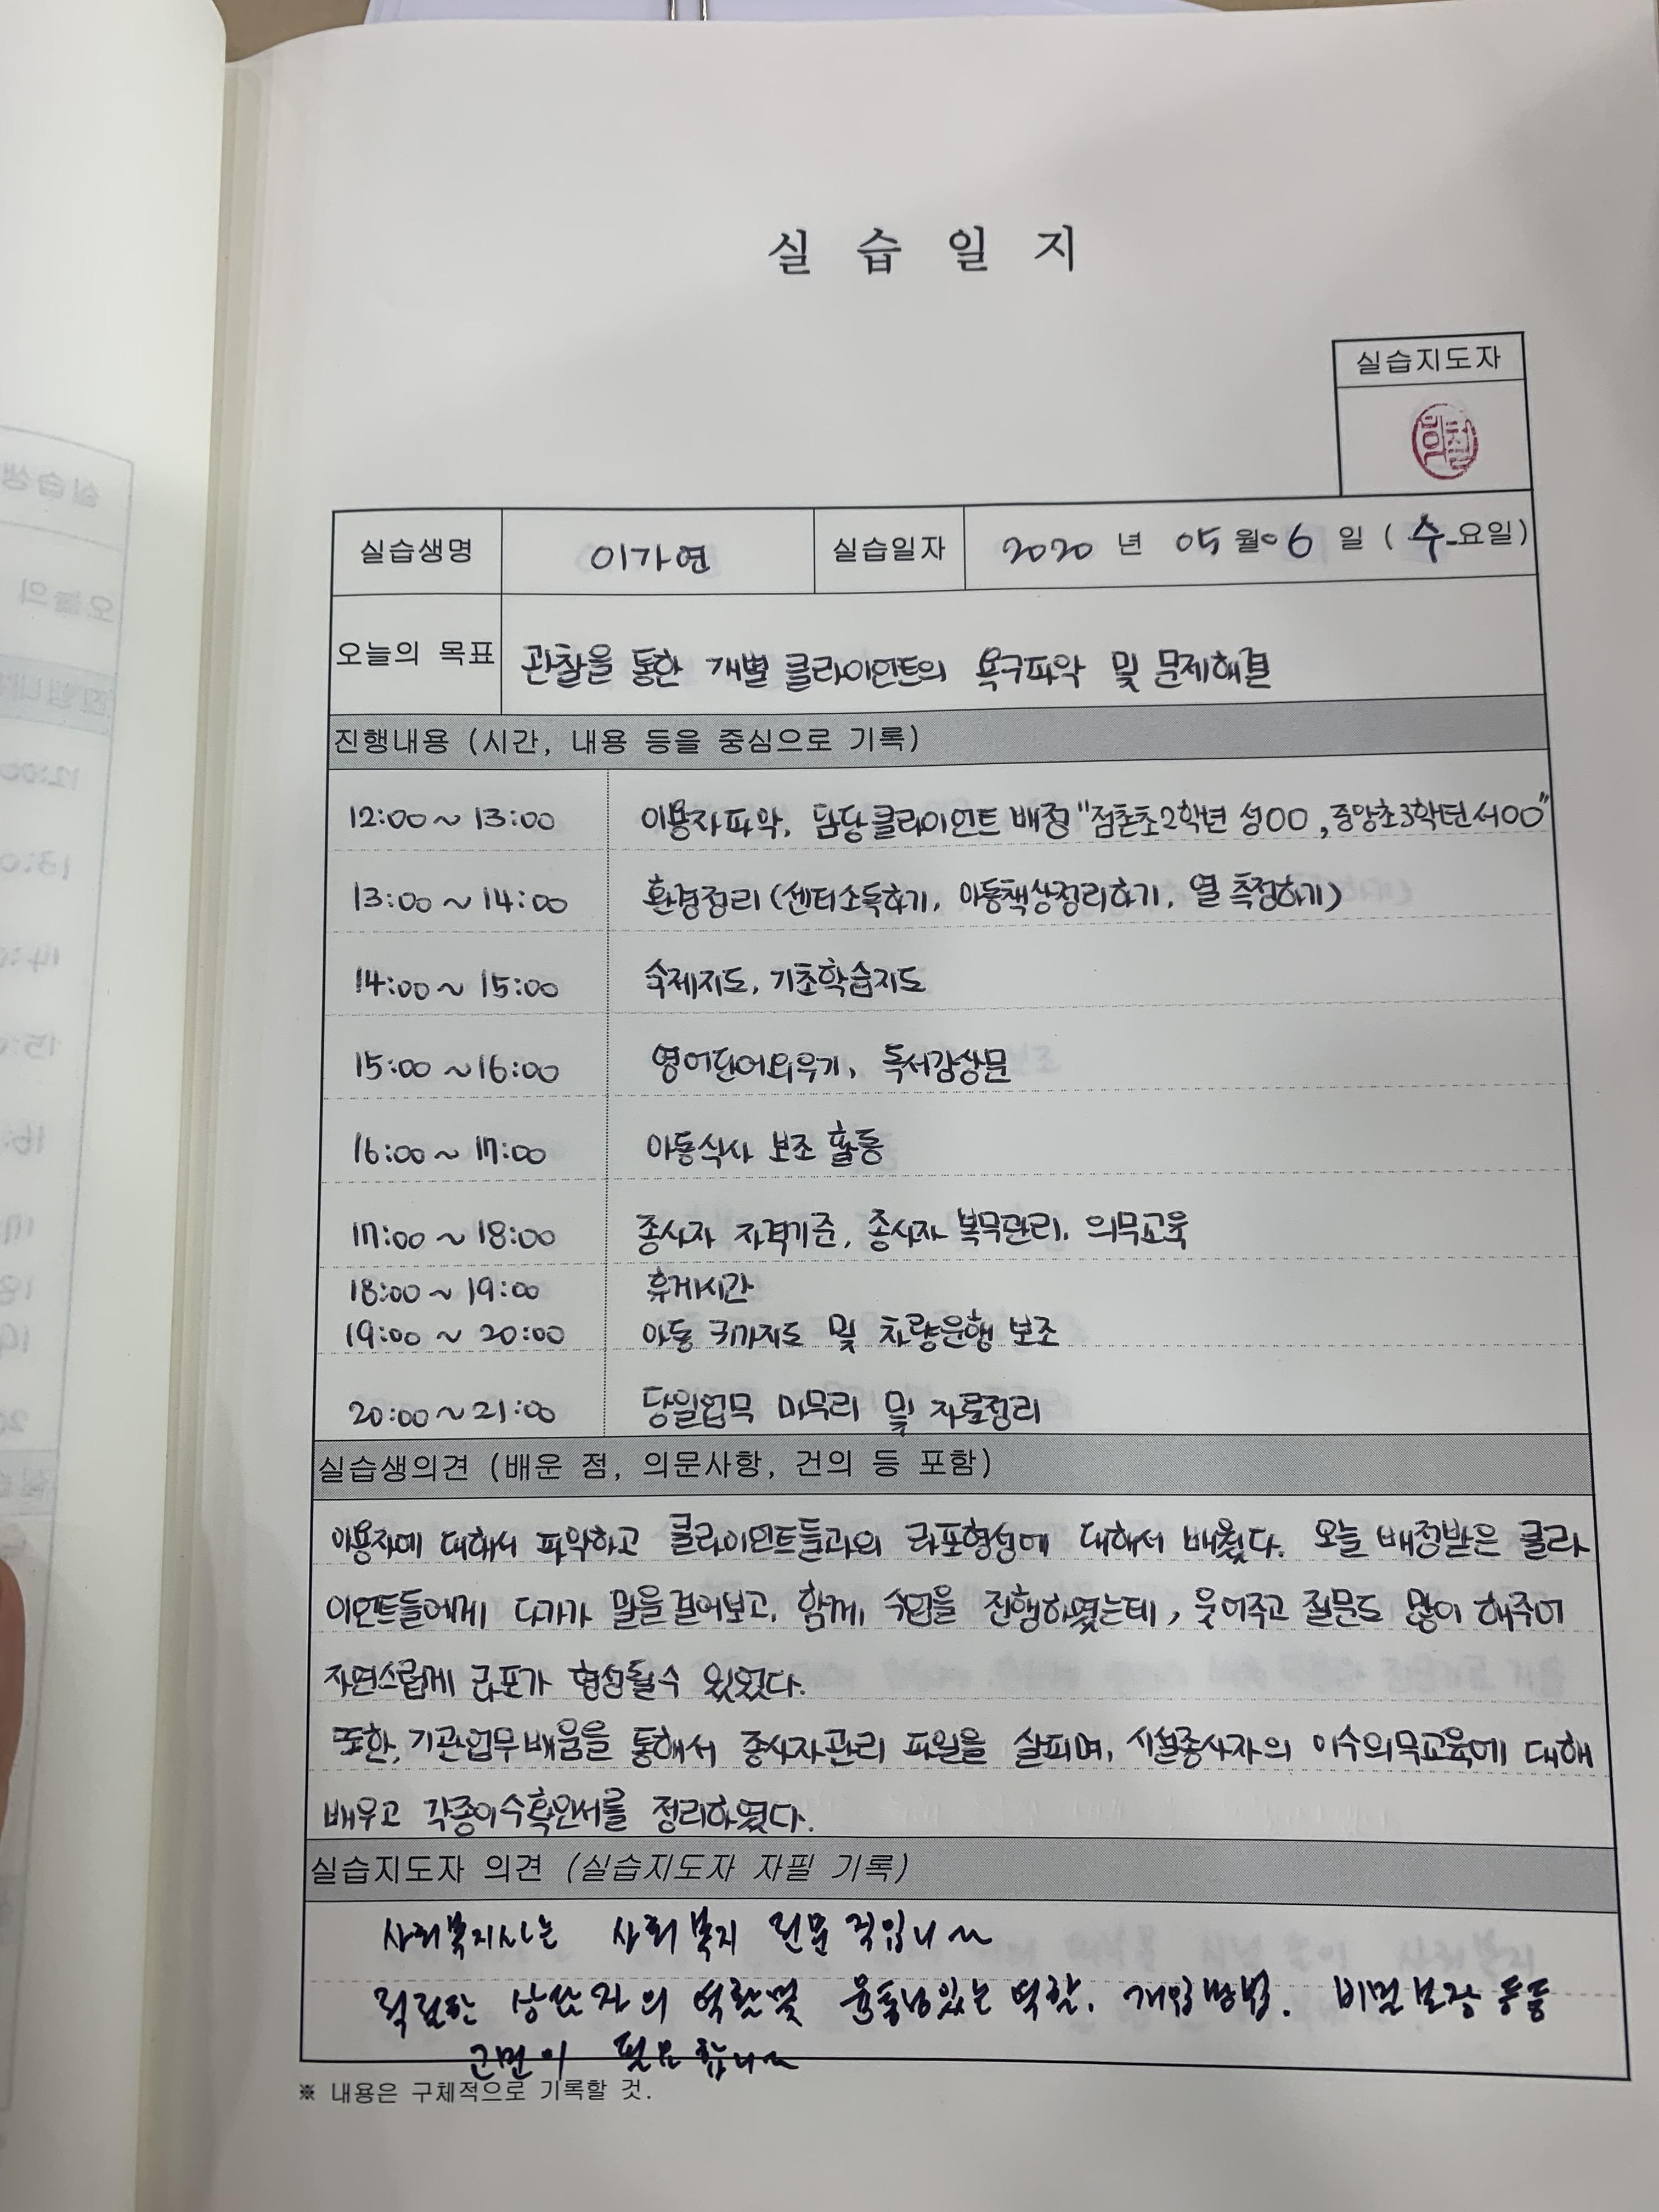 실 습 일 지
실습지도자
실습생명 이가연 실습일자 2020 년 05 월 06 일 ( 수 요일)
오늘의 목표 관찰을 통한 개별 클라이언트의 욕구파악 및 문제해결
진행내용 (시간, 내용 등을 중심으로 기록)
12:00 ~ 13:00 이용자파악, 담당클라이언트 배정 "점촌초2학년 성OO, 중앙초3학년 서OO"
13:00 ~ 14:00 환경정리 (센터소독하기, 아동책상정리하기, 열 측정하기)
14:00 ~ 15:00 숙제지도, 기초학습지도
15:00 ~ 16:00 영어단어외우기, 독서감상문
16:00 ~ 17:00 아동식사 보조 활동
17:00 ~ 18:00 종사자 자격기준, 종사자 복무관리, 의무교육
18:00 ~ 19:00 휴게시간
19:00 ~ 20:00 아동 귀가지도 및 차량운행 보조
20:00 ~ 21:00 당일업무 마무리 및 자료정리
실습생의견 (배운 점, 의문사항, 건의 등 포함)
이용자에 대해서 파악하고 클라이언트들과의 라포형성에 대해서 배웠다. 오늘 배정받은 클라
이언트들에게 다가가 말을걸어보고, 함께 수업을 진행하였는데, 웃어주고 질문도 많이 해주어
자연스럽게 라포가 형성될수 있었다.
또한, 기관업무배움을 통해서 종사자관리 파일을 살피며, 시설종사자의 이수의무교육에 대해
배우고 각종이수확인서를 정리하였다.
실습지도자 의견 (실습지도자 자필 기록)
사회복지사는 사회복지 전문직입니다
적절한 상담자의 역할및 융통성있는 역할. 개입방법. 비밀보장 등등
이 필요합니다
※ 내용은 구체적으로 기록할 것.